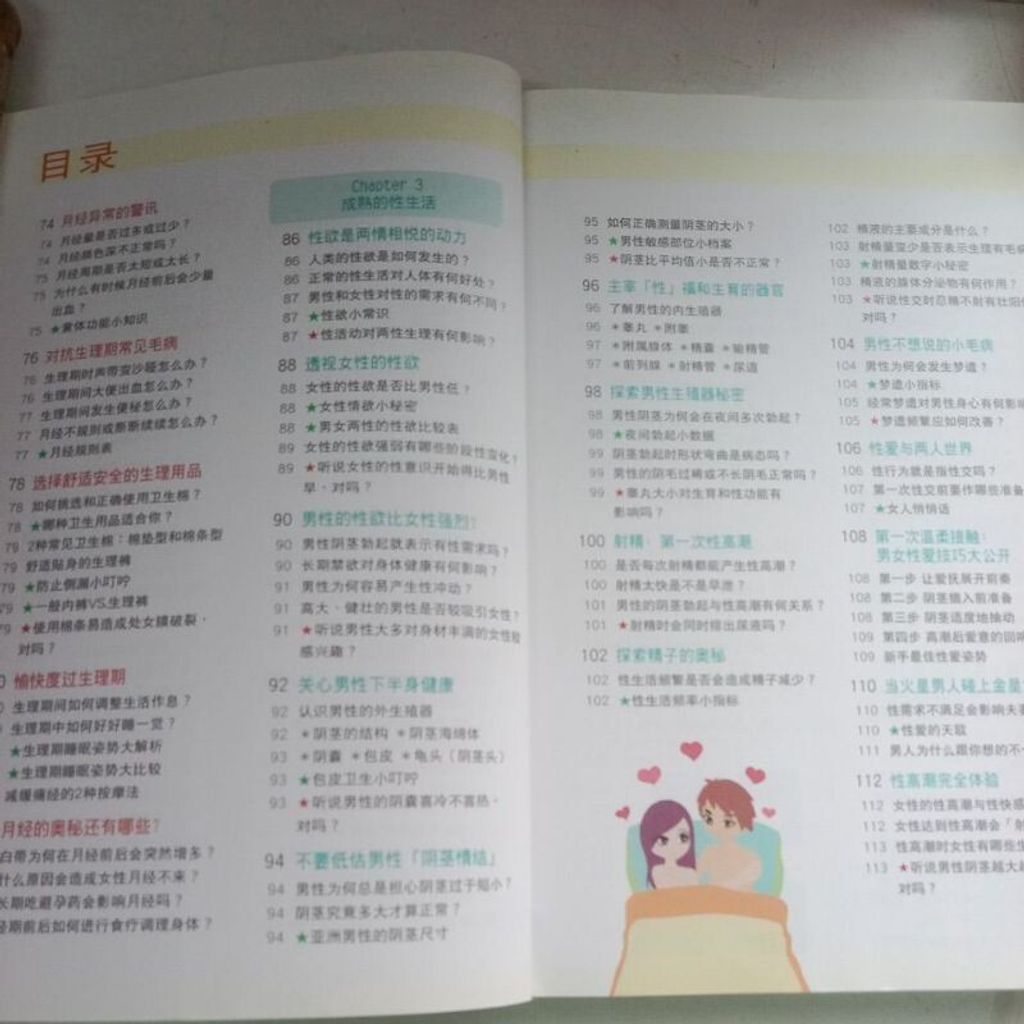 目录
74 月经异常的警讯
74 月经量是否过多或过少？
74 月经颜色深不正常吗？
75 月经周期是否太短或太长？
75 为什么有时候月经前后会少量
出血？
75 ★黄体功能小知识
76 对抗生理期常见毛病
76 生理期时声带变沙哑怎么办？
76 生理期间大便出血怎么办？
77 生理期间发生便秘怎么办？
77 月经不规则或断断续续怎么办？
77 ★月经规则表
78 选择舒适安全的生理用品
78 如何挑选和正确使用卫生棉？
78 ★哪种卫生用品适合你？
79 2种常见卫生棉：棉垫型和棉条型
79 舒适贴身的生理裤
79 ★防止侧漏小叮咛
79 ★一般内裤VS.生理裤
79 ★使用棉条易造成处女膜破裂，
对吗？
0 愉快度过生理期
生理期间如何调整生活作息？
生理期中如何好好睡一觉？
★生理期睡眠姿势大解析
★生理期睡眠姿势大比较
减缓痛经的2种按摩法
月经的奥秘还有哪些？
白带为何在月经前后会突然增多？
什么原因会造成女性月经不来？
长期吃避孕药会影响月经吗？
经期前后如何进行食疗调理身体？
Chapter 3
成熟的性生活
86 性欲是两情相悦的动力
86 人类的性欲是如何发生的？
86 正常的性生活对人体有何好处？
87 男性和女性对性的需求有何不同？
87 ★性欲小常识
87 ★性活动对两性生理有何影响？
88 透视女性的性欲
88 女性的性欲是否比男性低？
88 ★女性情欲小秘密
88 ★男女两性的性欲比较表
89 女性的性欲强弱有哪些阶段性变化？
89 ★听说女性的性意识开始得比男性
早，对吗？
90 男性的性欲比女性强烈？
90 男性阴茎勃起就表示有性需求吗？
90 长期禁欲对身体健康有何影响？
91 男性为何容易产生性冲动？
91 高大、健壮的男性是否较吸引女性？
91 ★听说男性大多对身材丰满的女性较
感兴趣？
92 关心男性下半身健康
92 认识男性的外生殖器
92 *阴茎的结构 *阴茎海绵体
93 *阴囊 *包皮 *龟头（阴茎头）
93 ★包皮卫生小叮咛
93 ★听说男性的阴囊喜冷不喜热，
对吗？
94 不要低估男性「阴茎情结」
94 男性为何总是担心阴茎过于短小？
94 阴茎究竟多大才算正常？
94 ★亚洲男性的阴茎尺寸
95 如何正确测量阴茎的大小？
95 ★男性敏感部位小档案
95 ★阴茎比平均值小是否不正常？
96 主宰「性」福和生育的器官
96 了解男性的内生殖器
96 *睾丸 *附睾
97 *附属腺体 *精囊 *输精管
97 *前列腺 *射精管 *尿道
98 探索男性生殖器秘密
98 男性阴茎为何会在夜间多次勃起？
98 ★夜间勃起小数据
99 阴茎勃起时形状弯曲是病态吗？
99 男性的阴毛过稀或不长阴毛正常吗？
99 ★睾丸大小对生育和性功能有
影响吗？
100 射精，第一次性高潮
100 是否每次射精都能产生性高潮？
100 射精太快是不是早泄？
101 男性的阴茎勃起与性高潮有何关系？
101 ★射精时会同时排出尿液吗？
102 探索精子的奥秘
102 性生活频繁是否会造成精子减少？
102 ★性生活频率小指标
102 精液的主要成分是什么？
103 射精量变少是否表示生理有毛病
103 ★射精量数字小秘密
103 精液的腺体分泌物有何作用？
103 ★听说性交时忍精不射有壮阳
对吗？
104 男性不想说的小毛病
104 男性为何会发生梦遗？
104 ★梦遗小指标
105 经常梦遗对男性身心有何影响
105 ★梦遗频繁应如何改善？
106 性爱与两人世界
106 性行为就是指性交吗？
107 第一次性交前要作哪些准备
107 ★女人悄悄话
108 第一次温柔接触：
男女性爱技巧大公开
108 第一步 让爱抚展开前奏
108 第二步 阴茎插入前准备
108 第三步 阴茎适度地抽动
109 第四步 高潮后爱意的回响
109 新手最佳性爱姿势
110 当火星男人碰上金星
110 性需求不满足会影响夫妻
110 ★性爱的天敌
111 男人为什么跟你想的不一
112 性高潮完全体验
112 女性的性高潮与性快感
112 女性达到性高潮会「射
113 性高潮时女性有哪些生
113 ★听说男性阴茎越大越
对吗？